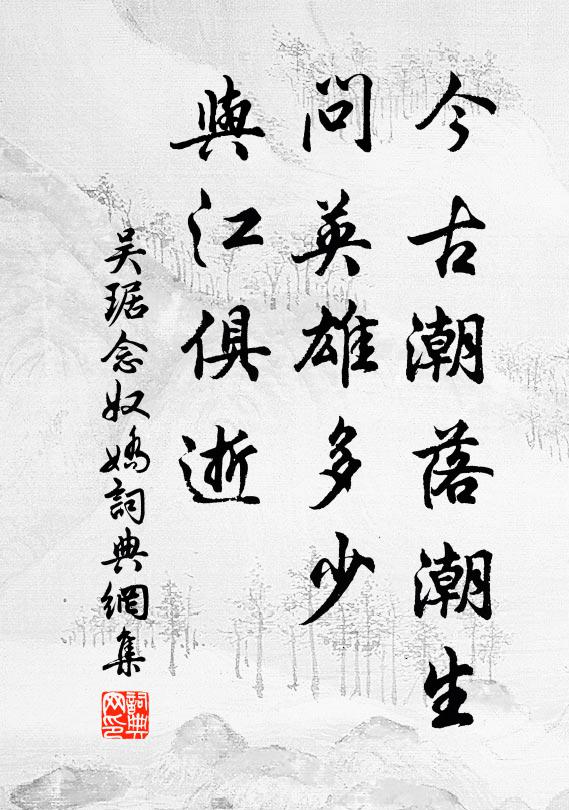 今古潮落潮生
問英雄多少
與江俱逝
吴琚念奴嬌詞典網集
詞典网印